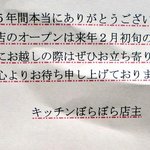 ５年間本当にありがとうござい
店のオープンは来年２月初旬の
にお越しの際はぜひお立ち寄り
心よりお待ち申し上げておりま
キッチンぽらぽら店主